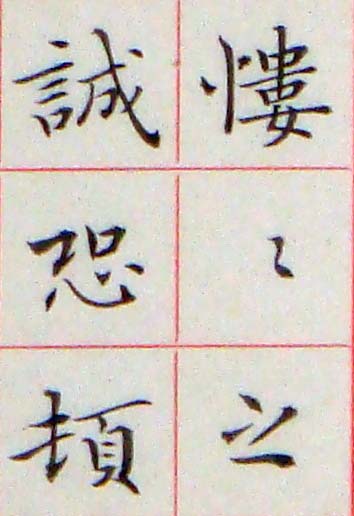 慺〻之
誠恐頓